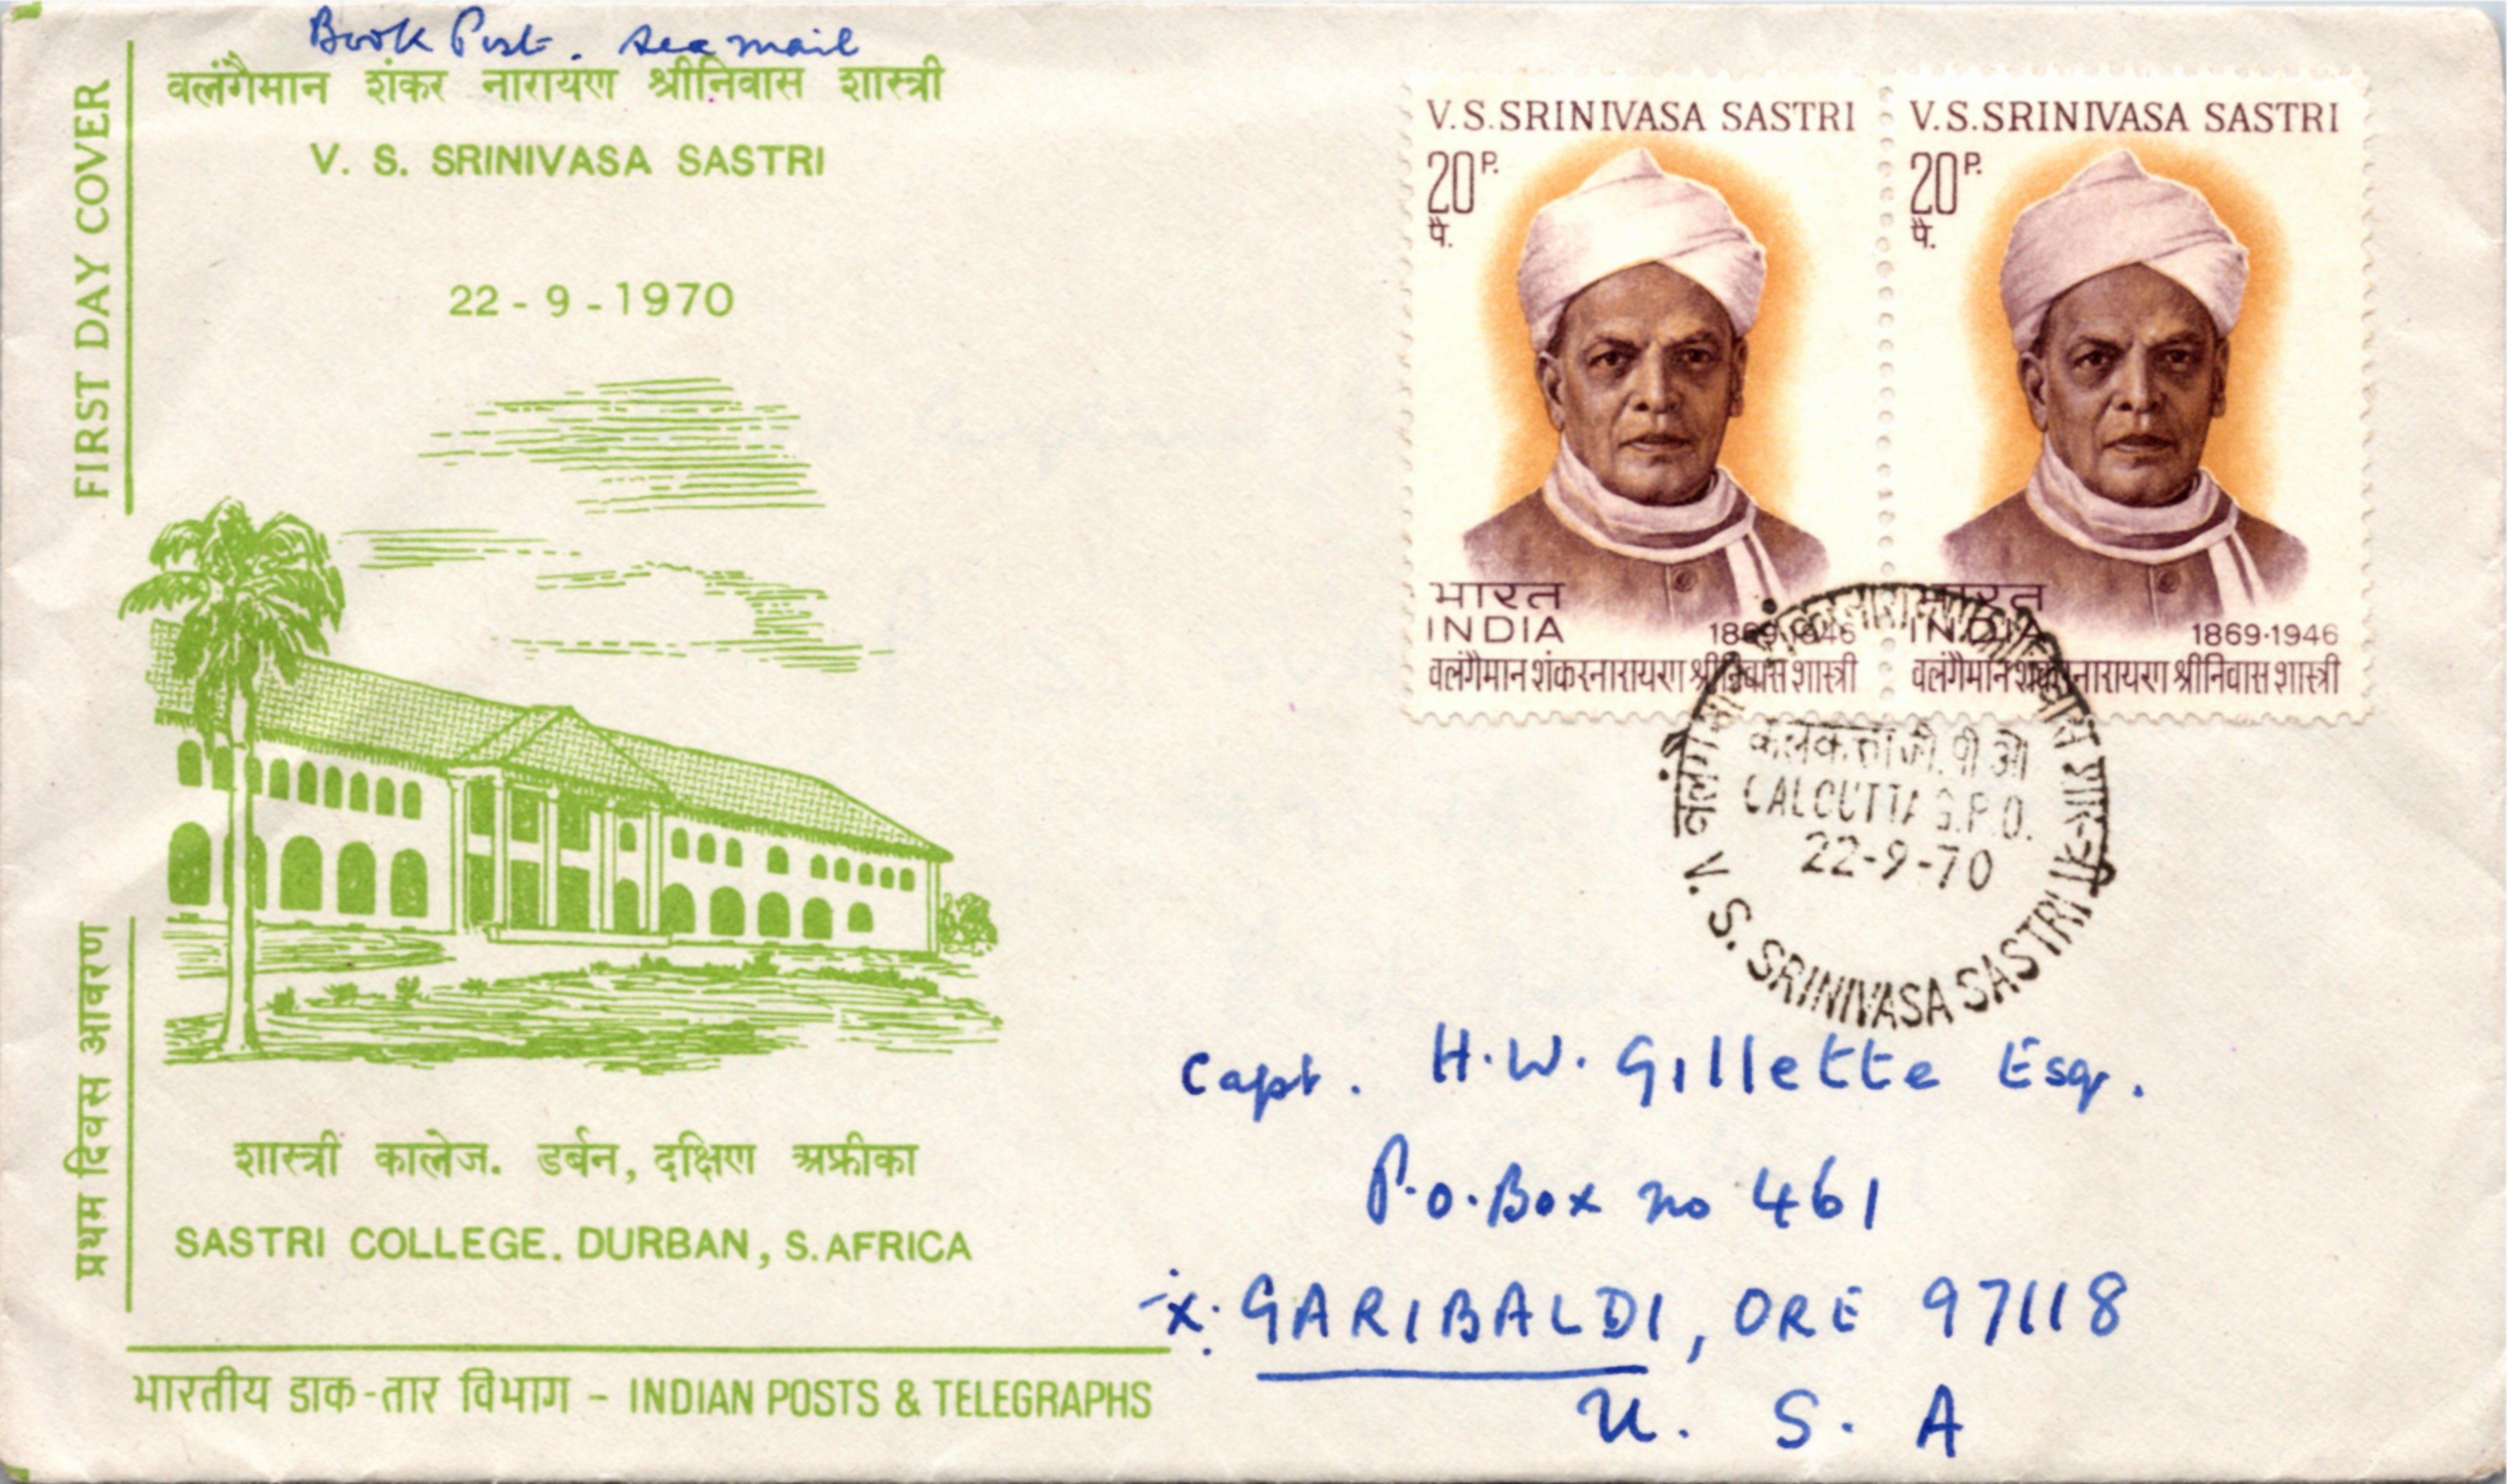 Book Post. Sea mail
वलंगैमान शंकर नारायण श्रीनिवास शास्त्री
V. S. SRINIVASA SASTRI
22-9-1970
FIRST DAY COVER
प्रथम दिवस आवरण
शास्त्री कालेज. डर्बन, दक्षिण अफ्रीका
SASTRI COLLEGE. DURBAN, S. AFRICA
भारतीय डाक-तार विभाग - INDIAN POSTS & TELEGRAPHS
V.S.SRINIVASA SASTRI
20 P.
पै.
भारत
INDIA
1869·1946
वलंगैमान शंकरनारायण श्रीनिवास शास्त्री
V.S.SRINIVASA SASTRI
20 P.
पै.
भारत
INDIA
1869·1946
वलंगैमान शंकरनारायण श्रीनिवास शास्त्री
वलंगैमान शंकर नारायण श्रीनिवास शास्त्री
कलकत्ता जी. पी. ओ
CALCUTTA G.P.O.
22-9-70
V. S. SRINIVASA SASTRI
Capt. H.W. Gillette Esq.
P.O. Box no 461
x. GARIBALDI, ORE 97118
U. S. A